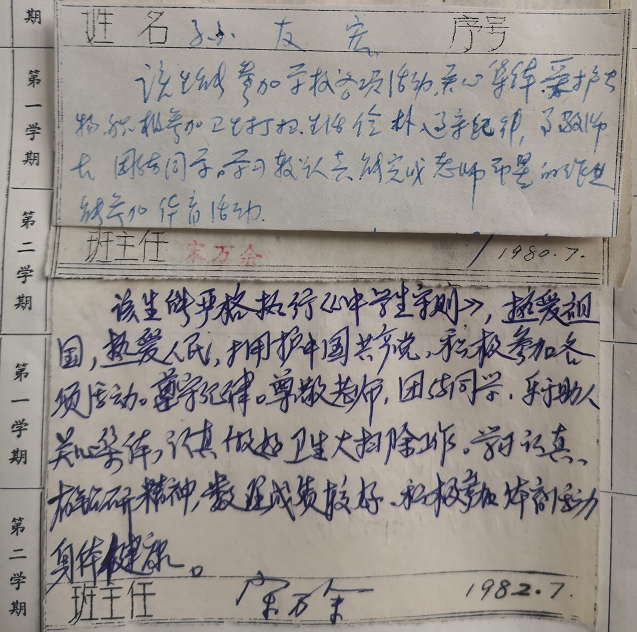 期
第一学期
第二学期
第一学期
第二学期
姓名 孙友宏 序号
该生能参加学校各项活动,关心集体,爱护公
物,积极参加卫生打扫,生活俭朴,遵守纪律,尊敬师
长,团结同学。学习较认真,能完成老师布置的作业
能参加体育活动.
班主任 宋万金 1980.7.
该生能严格执行《中学生守则》,热爱祖
国,热爱人民,拥护中国共产党,积极参加各
项活动。尊守纪律。尊敬老师,团结同学,乐于助人
关心集体,认真做好卫生大扫除工作。学习认真、
有钻研精神,数理成绩较好。积极参加体育活动
身体健康。
班主任 宋万金 1982.7.